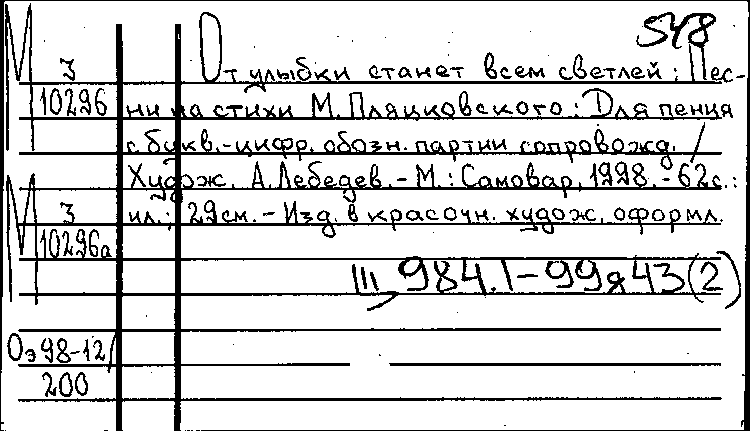 548
М З
10296
От улыбки станет всем светлей: Пес-
ни на стихи М. Пляцковского: Для пения
с букв.-цифр. обозн. партии сопровожд. /
Худож. А. Лебедев. - М.: Самовар, 1998. - 62с.:
ил.; 29см. - Изд. в красочн. худож. оформл.
М З
10296а
III, 984.1-99я43(2)
Оэ98-12/
200